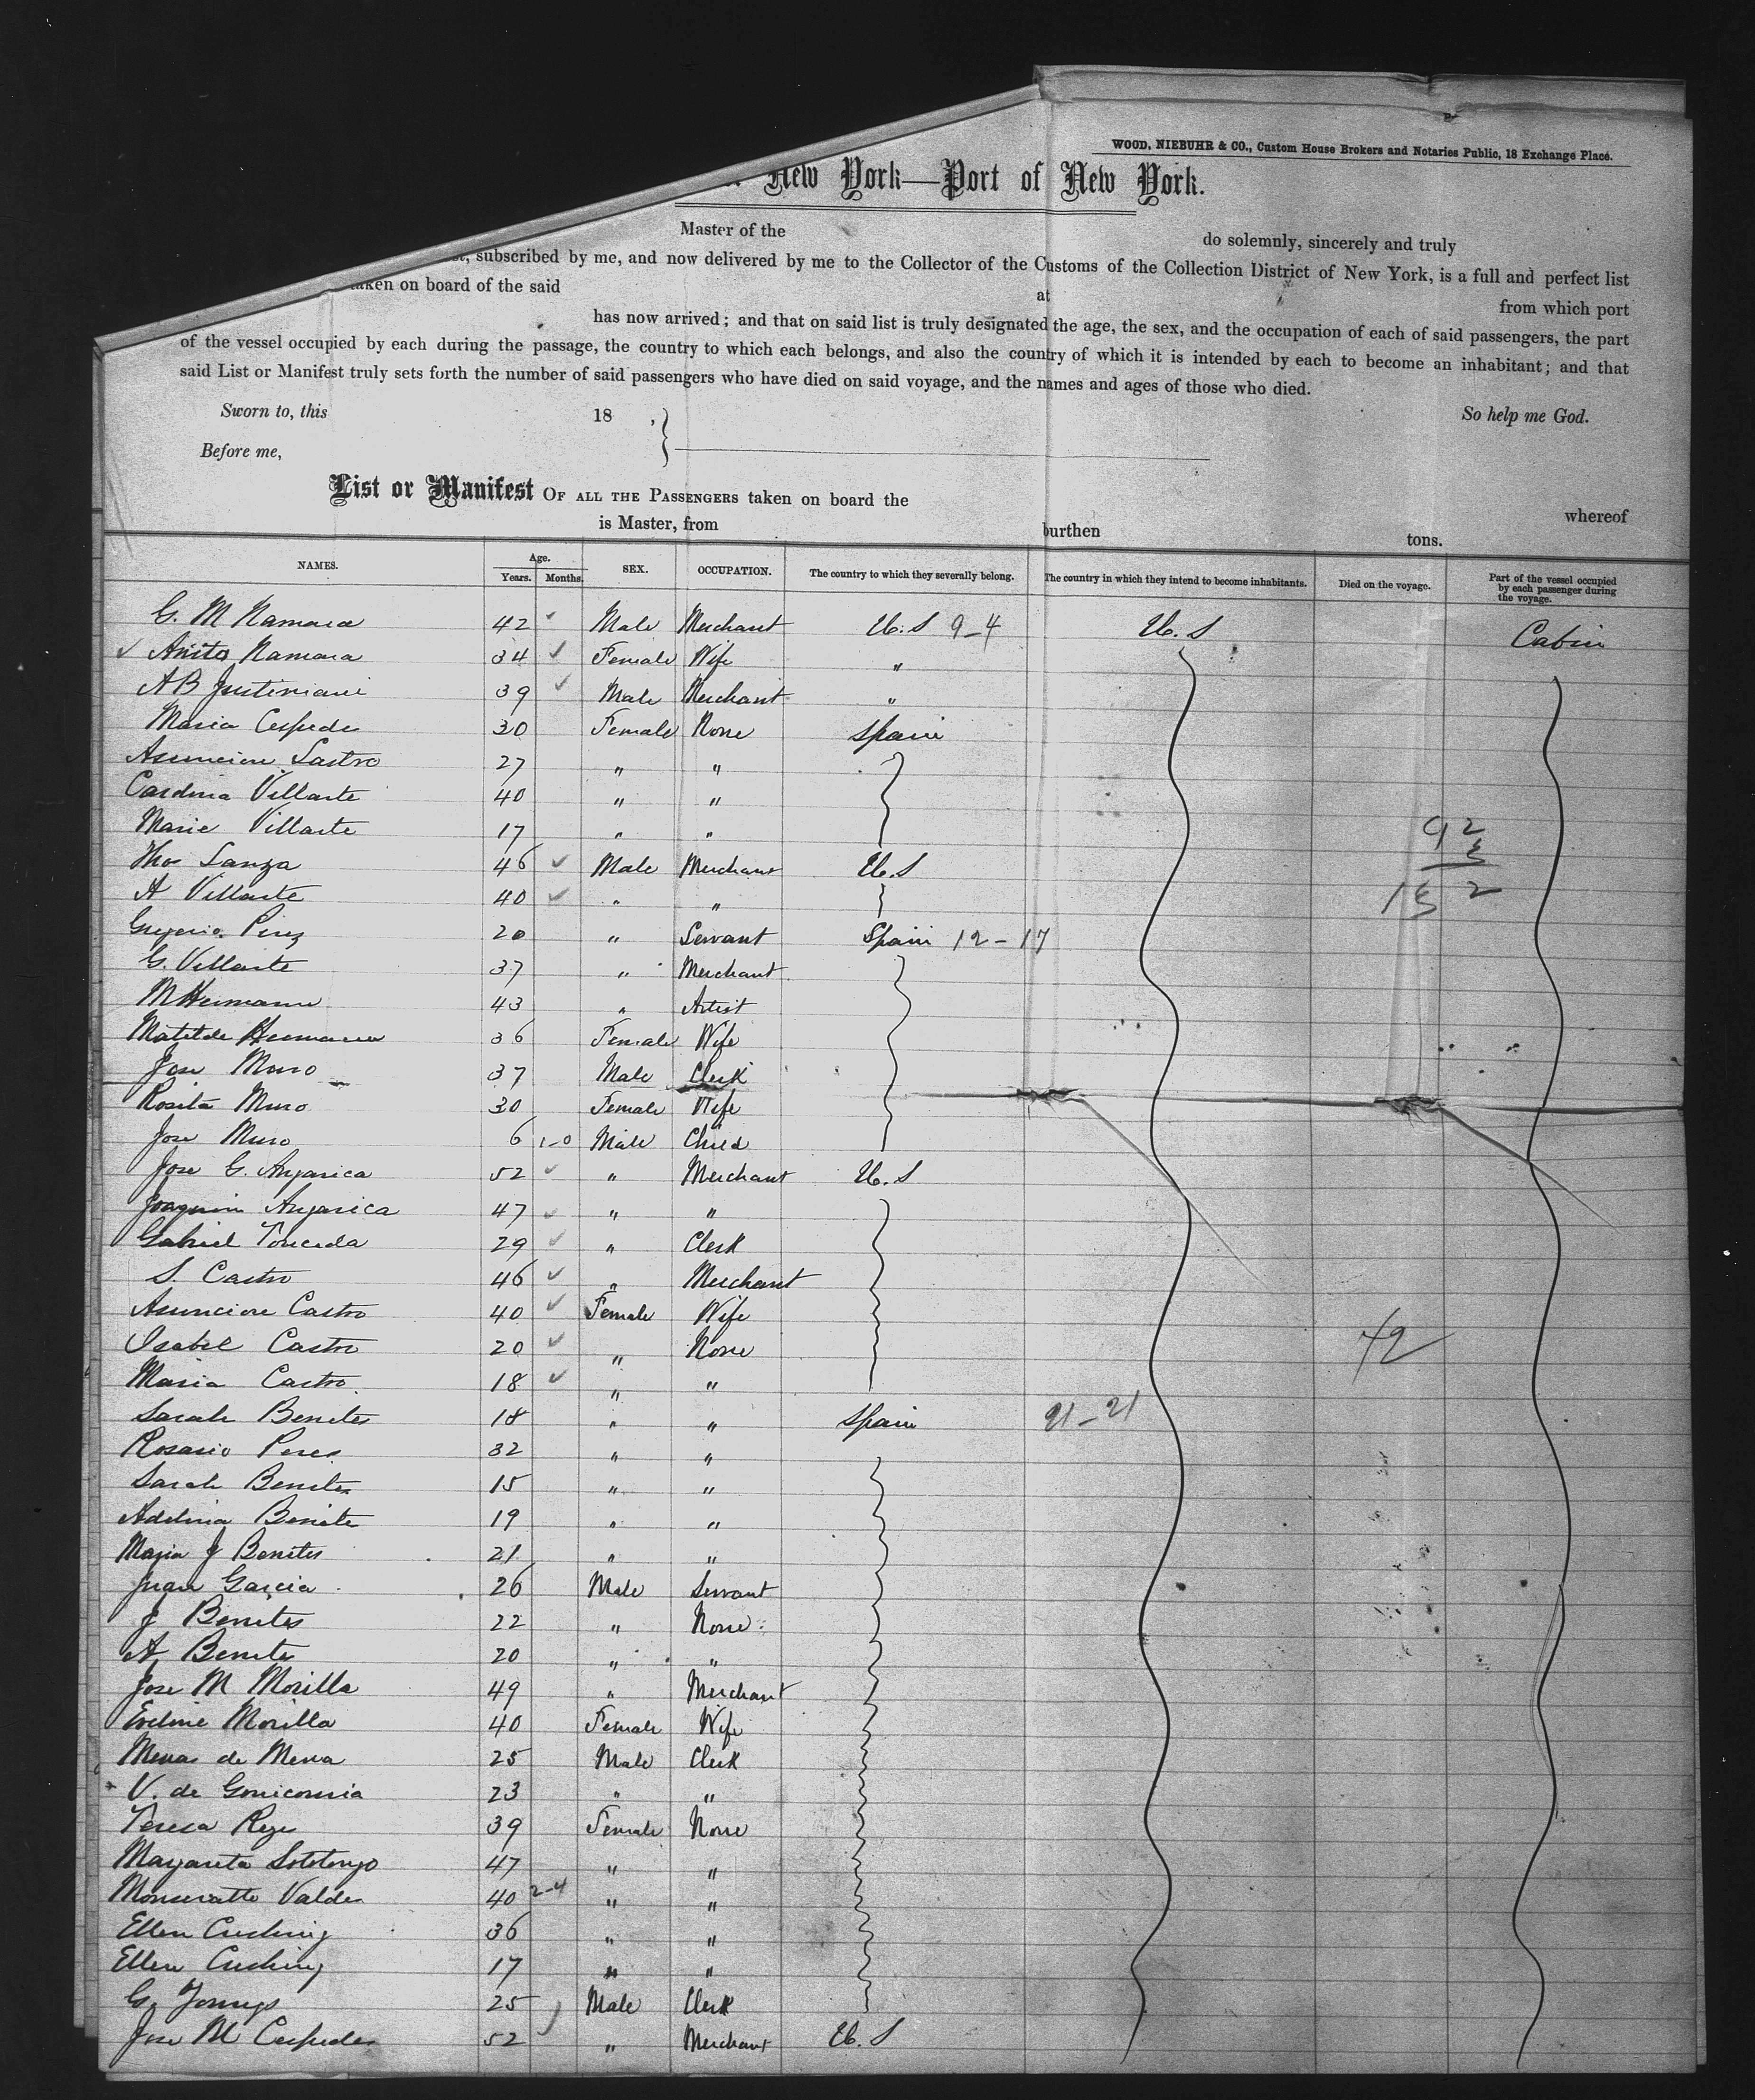 WOOD, NIEBUHR & CO., Custom House Brokers and Notaries Public, 18 Exchange Place.
New York—Port of New York.
Master of the do solemnly, sincerely and truly
subscribed by me, and now delivered by me to the Collector of the Customs of the Collection District of New York, is a full and perfect list
taken on board of the said at from which port
has now arrived; and that on said list is truly designated the age, the sex, and the occupation of each of said passengers, the part
of the vessel occupied by each during the passage, the country to which each belongs, and also the country of which it is intended by each to become an inhabitant; and that
said List or Manifest truly sets forth the number of said passengers who have died on said voyage, and the names and ages of those who died.
Sworn to, this 18 , So help me God.
Before me,
List or Manifest OF ALL THE PASSENGERS taken on board the whereof
is Master, from burthen tons.
NAMES. Age. Years. Months. SEX. OCCUPATION. The country to which they severally belong. The country in which they intend to become inhabitants. Died on the voyage. Part of the vessel occupied by each passenger during the voyage.
G. M Namara 42 Male Merchant U.S 9-4 U.S Cabin
Anita Namara 34 Female Wife "
A B Justiniani 39 Male Merchant "
Maria Cespede 30 Female None Spain
Asuncion Sastro 27 " "
Cardina Villarte 40 " "
Marie Villarte 17 " " 92
Thos Lanza 46 Male Merchant U.S
A Villarte 40 " "
Gregorio Perez 20 " Servant Spain 12-17
G. Villarte 37 " Merchant
M Hermann 43 " Artist
Matilde Hermann 36 Female Wife
Jose Muro 37 Male Clerk
Rosita Muro 30 Female Wife
Jose Muro 6 1-0 Male Child
Jose G. Angarica 52 " Merchant U.S
Joaquin Angarica 47 " "
Gabriel Touceda 29 " Clerk
S. Castro 46 " Merchant
Asuncion Castro 40 Female Wife
Isabel Castro 20 " None 42
Maria Castro 18 " "
Sarah Benites 18 " " Spain 21-21
Rosario Peres 32 " "
Sarah Benites 15 " "
Adelina Benite 19 " "
Maria J Benites 21 " "
Juan Garcia 26 Male Servant
J Benites 22 " None
A Benite 20 " "
Jose M Morilla 49 " Merchant
Eveline Morilla 40 Female Wife
Menas de Mena 25 Male Clerk
V. de Gonicouria 23 " "
Teresa Reye 39 Female None
Margareta Sototongo 47 " "
Monseratte Valdes 40 2-4 " "
Ellen Cushing 36 " "
Ellen Cushing 17 " "
G. 25 Male Clerk
Jose M Cespedes 52 " Merchant U.S